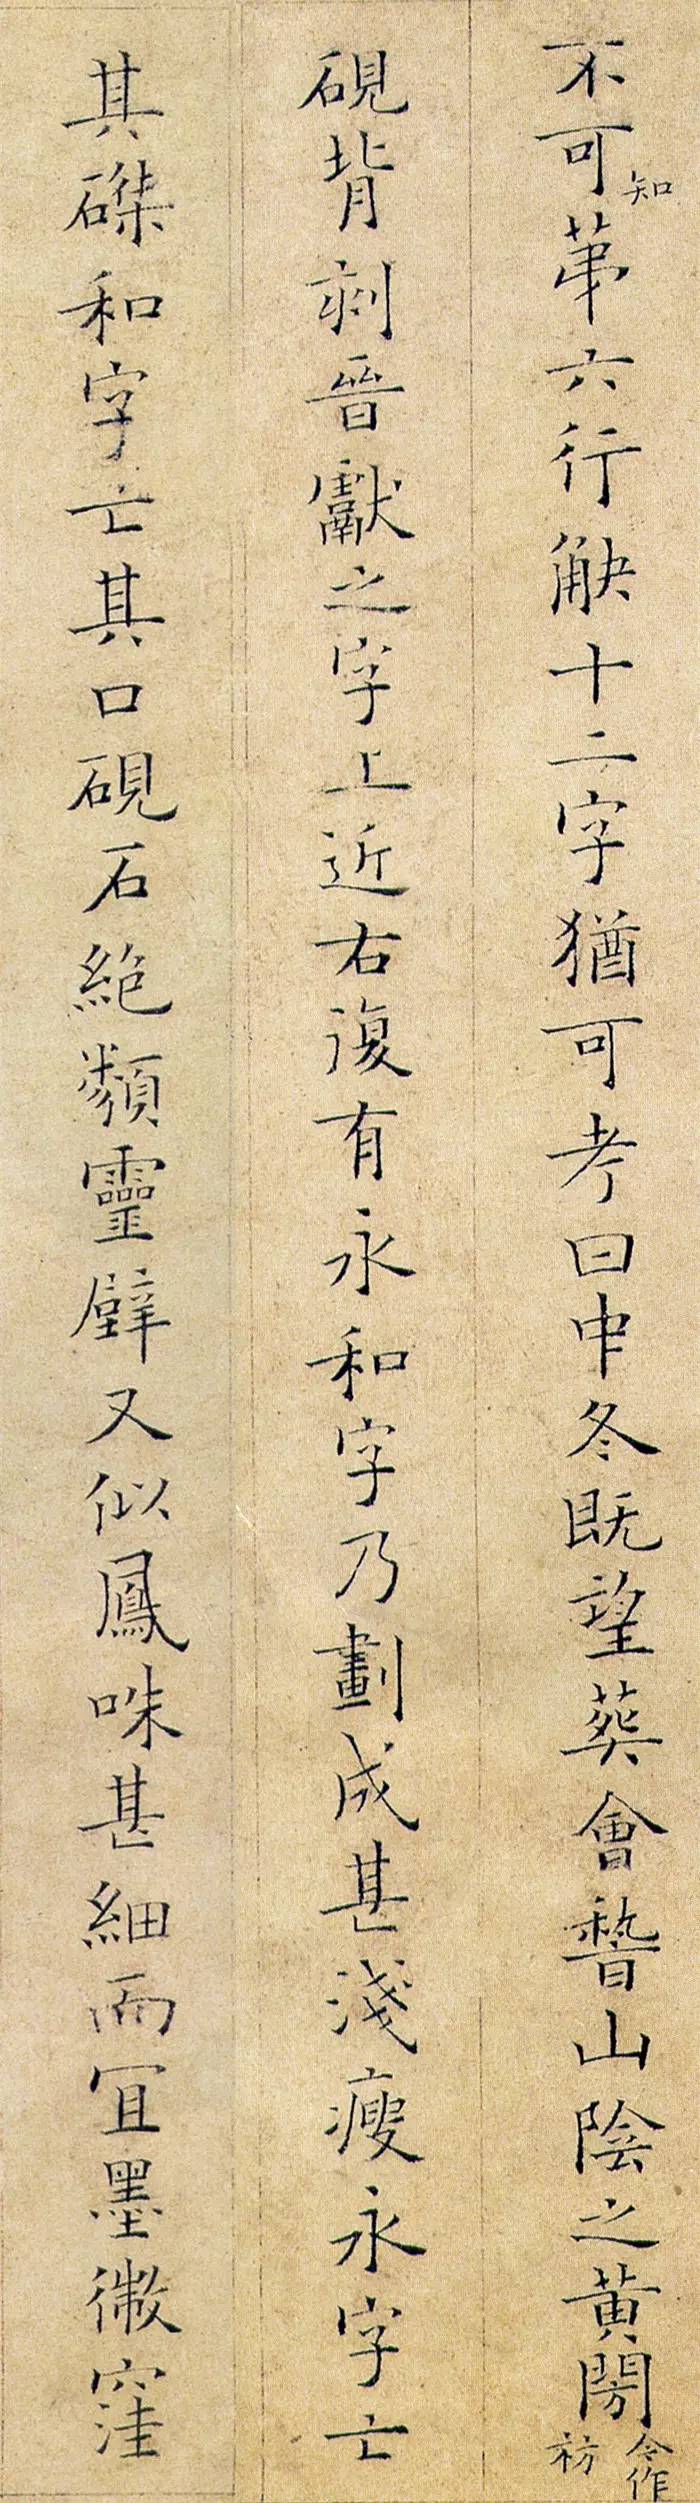 不可知第六行缺十二字猶可考曰中冬既望葬會稽山陰之黃閍令作祊
硯背刻晉獻之字上近右復有永和字乃劃成甚淺瘦永字亡
其磔和字亡其口硯石絶類靈壁又似鳳咮甚細而宜墨微窪